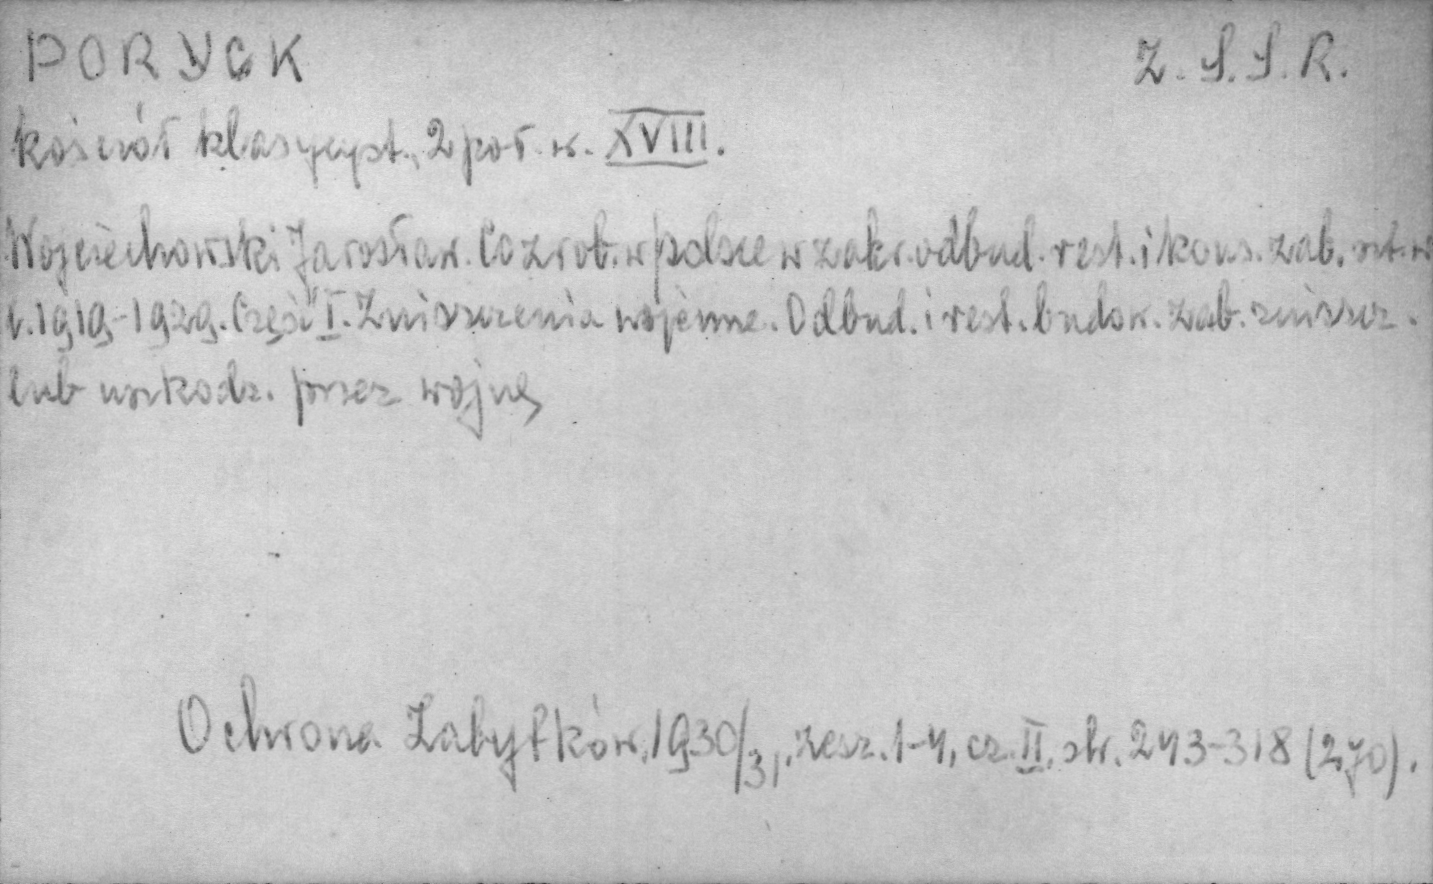 PORYCK Z.S.S.R.
kościół klasycyst., 2 poł. w. XVIII.
Wojciechowski Jarosław. Co zrob. w Polsce w zakr. odbud. rest. i kons. zab. szt. w
l. 1919-1929. Część I. Zniszczenia wojenne. Odbud. i rest. budow. zab. zniszcz.
lub uszkodz. przez wojnę
Ochrona Zabytków, 1930/31, zesz. 1-4, cz. II, str. 243-318 (270).